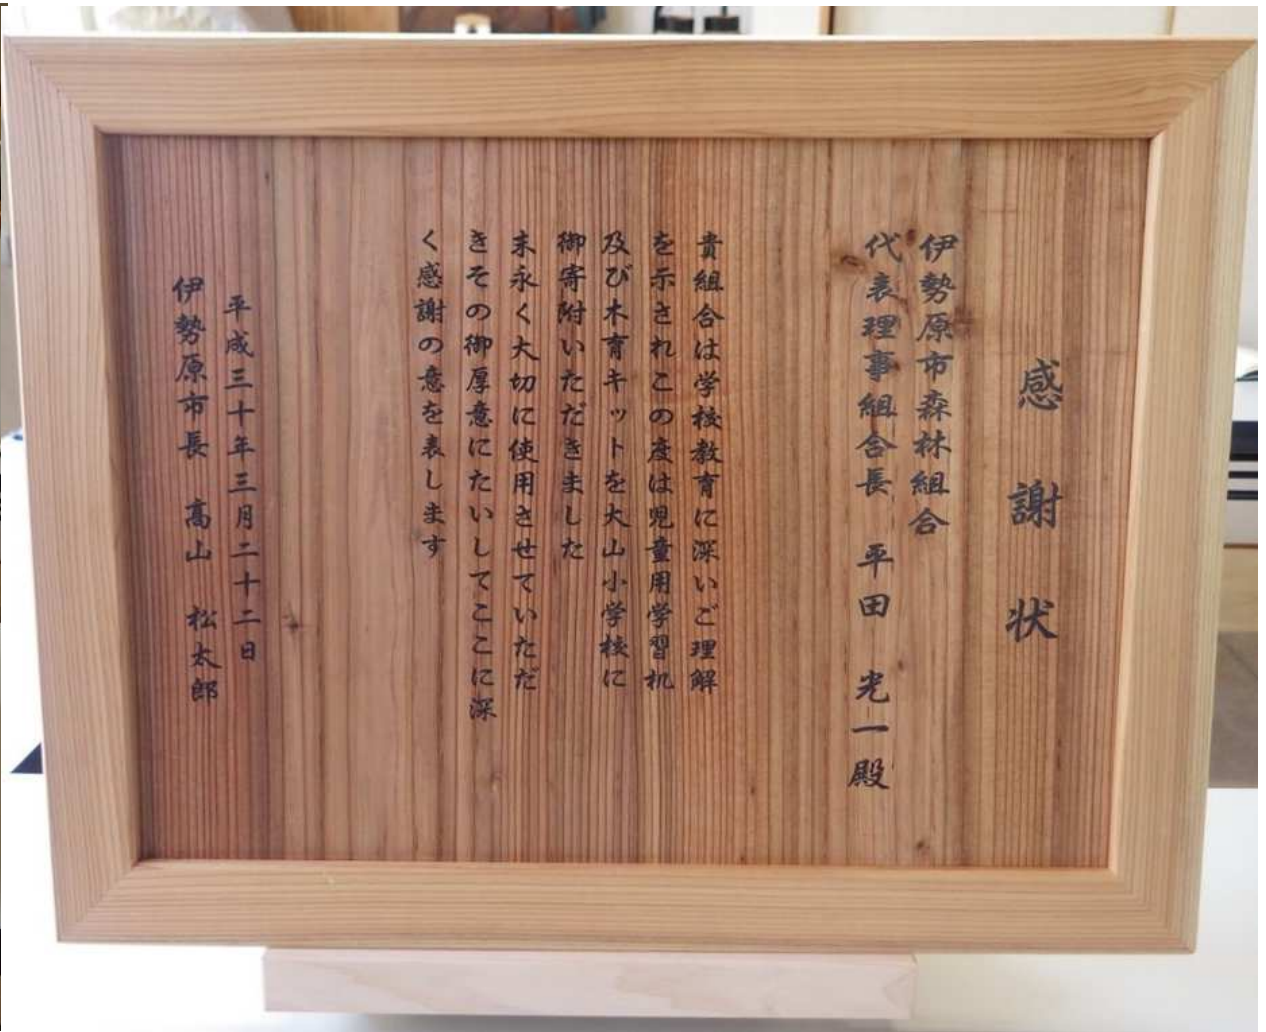 感謝状
伊勢原市森林組合
代表理事組合長 平田 光一殿
貴組合は学校教育に深いご理解
を示されこの度は児童用学習机
及び木育キットを大山小学校に
御寄附いただきました
末永く大切に使用させていただ
きその御厚意にたいしてここに深
く感謝の意を表します
平成三十年三月二十二日
伊勢原市長 高山 松太郎